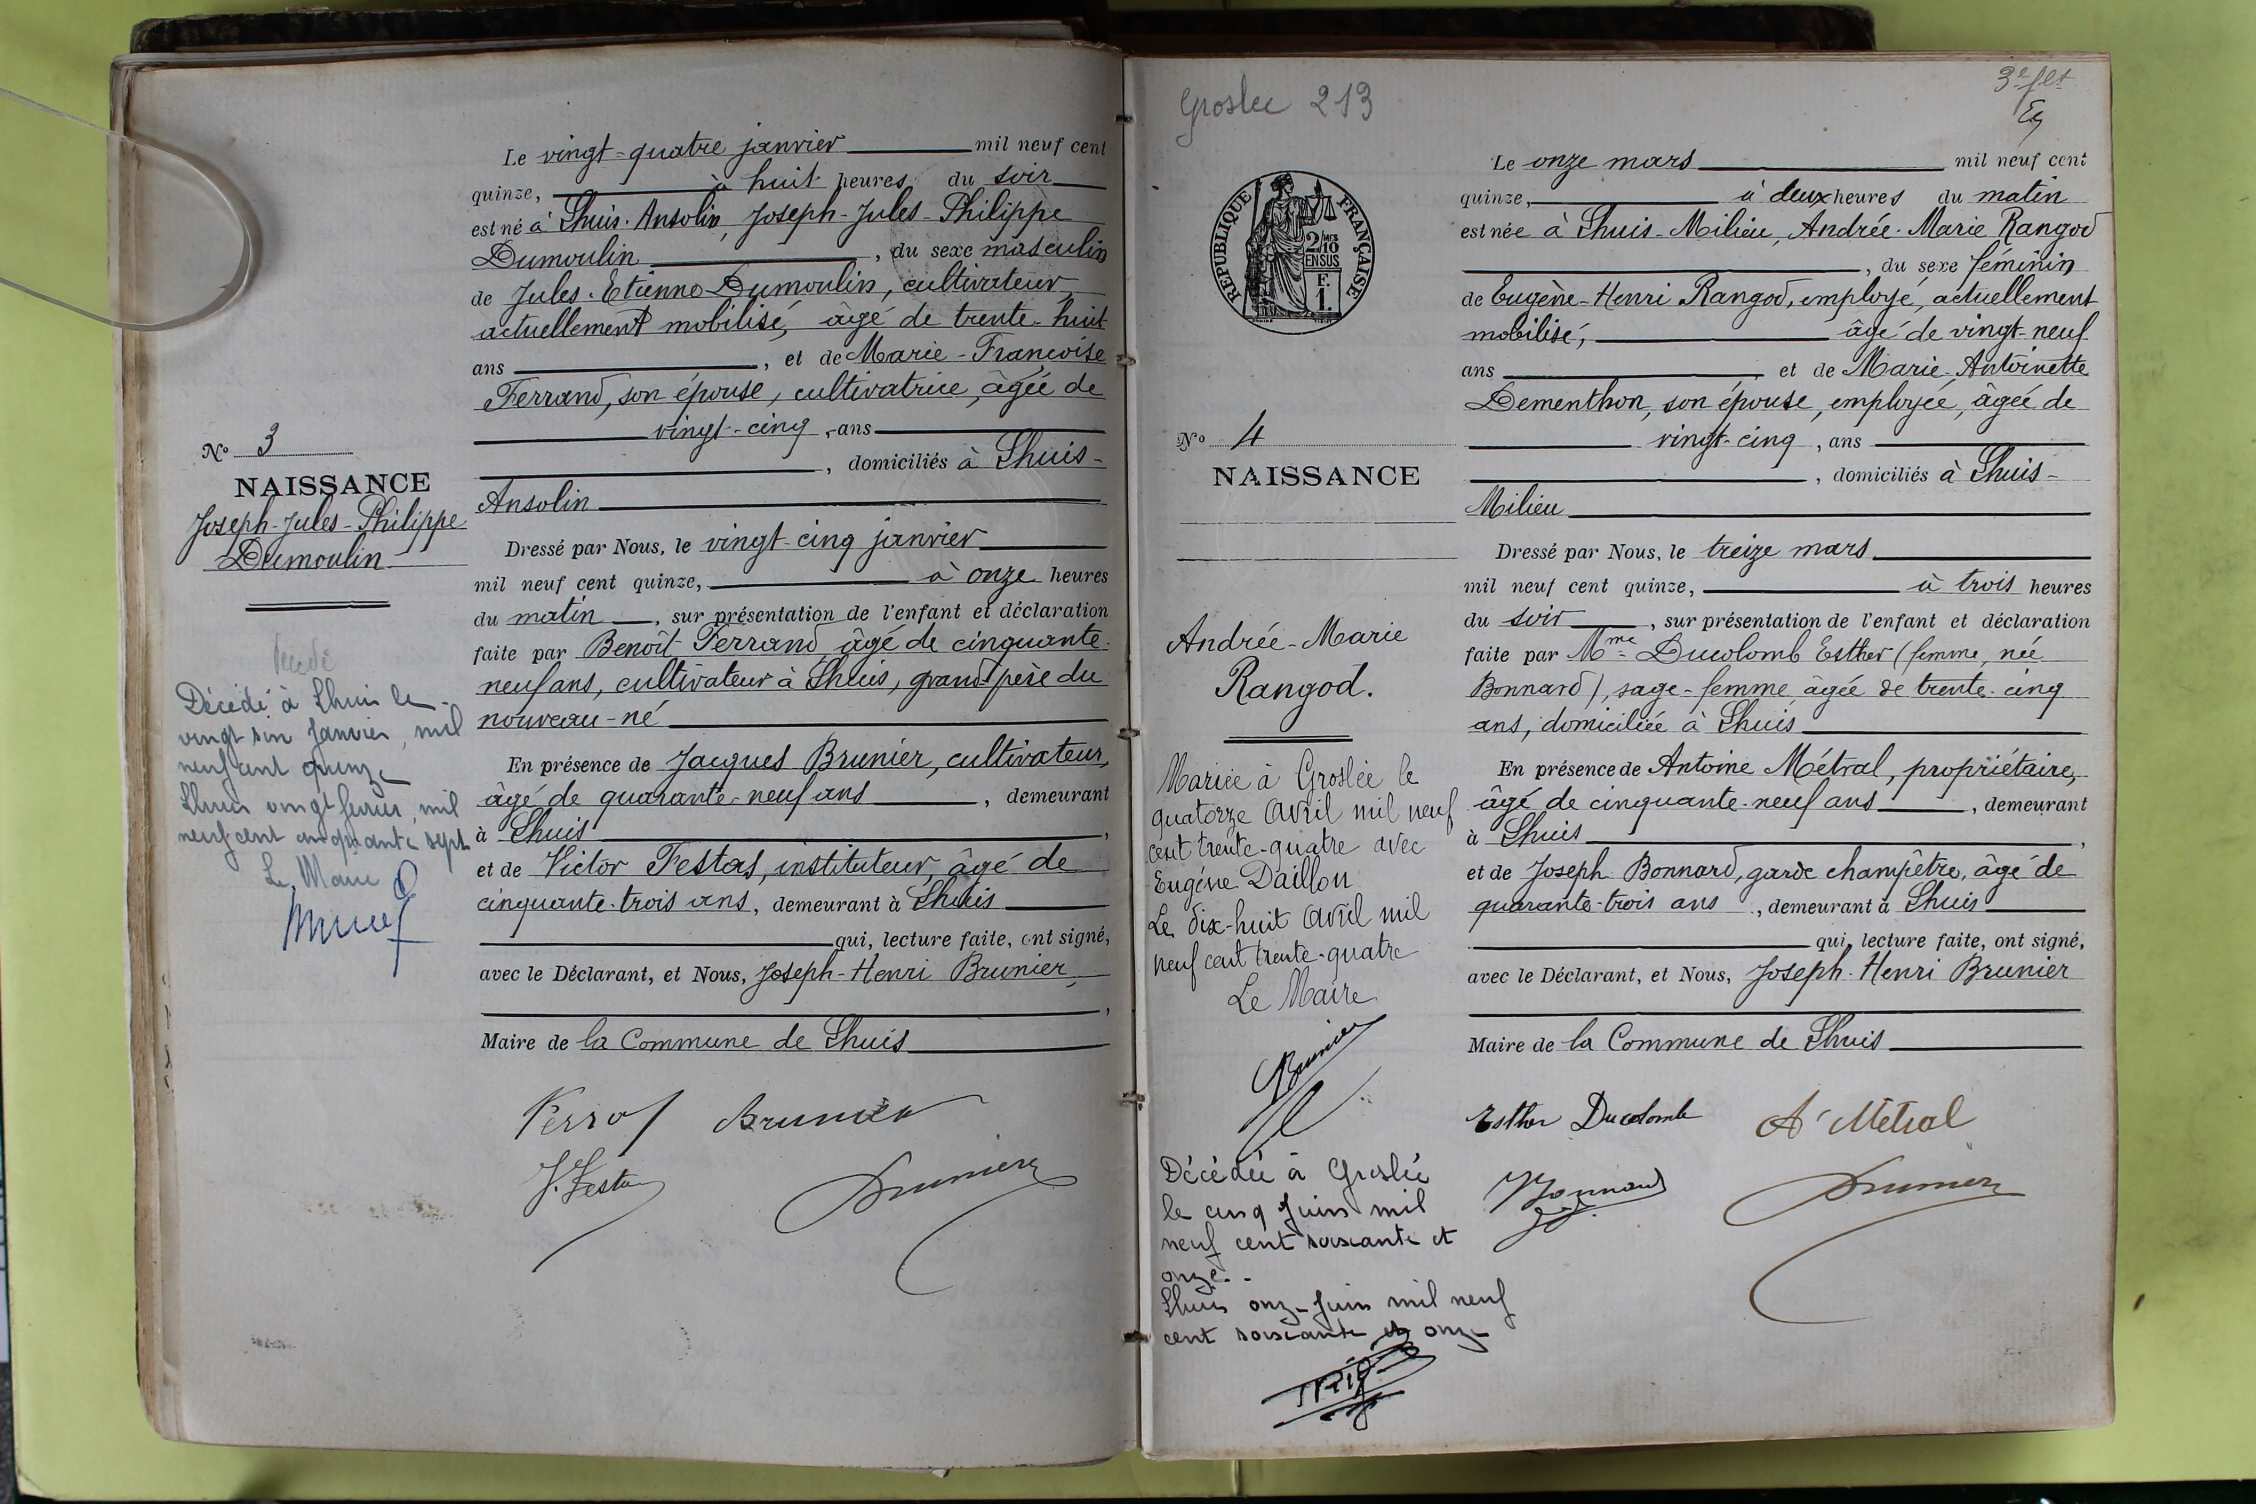 Le vingt-quatre janvier mil neuf cent
quinze, à huit heures du soir
est né à Lhuis-Ansolin, Joseph-Jules-Philippe
Dumoulin, du sexe masculin
de Jules-Etienne Dumoulin, cultivateur,
actuellement mobilisé, âgé de trente-huit
ans, et de Marie-Françoise
Ferrand, son épouse, cultivatrice, âgée de
vingt-cinq, ans
, domiciliés à Lhuis-
Ansolin
Dressé par Nous, le vingt-cinq janvier
mil neuf cent quinze, à onze heures
du matin, sur présentation de l'enfant et déclaration
faite par Benoît Ferrand, âgé de cinquante-
neuf ans, cultivateur à Lhuis, grand-père du
nouveau-né
En présence de Jacques Brunier, cultivateur,
âgé de quarante-neuf ans, demeurant
à Lhuis,
et de Victor Festas, instituteur, âgé de
cinquante-trois ans, demeurant à Lhuis
qui, lecture faite, ont signé,
avec le Déclarant, et Nous, Joseph-Henri Brunier,
,
Maire de la Commune de Lhuis
Brunier
V. Festas
Brunier
No 3
NAISSANCE
Joseph-Jules-Philippe
Dumoulin
Décédé à Lhuis le
vingt six Janvier, mil
neuf cent quinze
Lhuis vingt février, mil
neuf cent cinquante sept
Le Maire
Groslée 213
3e flet
RÉPUBLIQUE FRANÇAISE
2/10
EN SUS
F.
1.
No 4
NAISSANCE
Andrée-Marie
Rangod.
Mariée à Groslée le
quatorze Avril mil neuf
cent trente-quatre avec
Eugène Daillon
Le dix-huit Avril mil
neuf cent trente-quatre
Le Maire
Brunier
Décédée à Groslée
le cinq Juin mil
neuf cent soixante et
onze.
Lhuis onze Juin mil neuf
cent soixante et onze
Le onze mars mil neuf cent
quinze, à deux heures du matin
est née à Lhuis-Milieu, Andrée-Marie Rangod
, du sexe féminin
de Eugène-Henri Rangod, employé, actuellement
mobilisé, âgé de vingt-neuf
ans et de Marie-Antoinette
Dementhon, son épouse, employée, âgée de
vingt-cinq, ans
, domiciliés à Lhuis-
Milieu
Dressé par Nous, le treize mars
mil neuf cent quinze, à trois heures
du soir, sur présentation de l'enfant et déclaration
faite par Mme Ducolomb Esther (femme, née
Bonnard), sage-femme, âgée de trente-cinq
ans, domiciliée à Lhuis
En présence de Antoine Métral, propriétaire,
âgé de cinquante-neuf ans, demeurant
à Lhuis,
et de Joseph Bonnard, garde champêtre, âgé de
quarante-trois ans, demeurant à Lhuis
qui, lecture faite, ont signé,
avec le Déclarant, et Nous, Joseph-Henri Brunier
Maire de la Commune de Lhuis
Esther Ducolomb A Métral
Bonnard Brunier